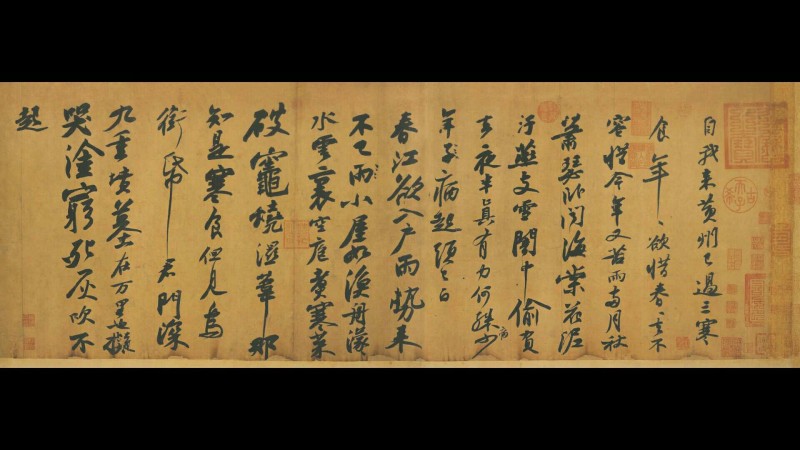 自我來黃州已過三寒
食年〻欲惜春〻去不
容惜今年又苦雨兩月秋
蕭瑟卧聞海棠花泥
汙燕支雪闇中偷負
去夜半真有力何殊少
病
年子病起頭已白
春江欲入戶雨勢來
不已雨小屋如漁舟濛〻
水雲裏空庖煮寒菜
破竈燒濕葦那
知是寒食但見烏
銜帋君門深
九重墳墓在万里也擬
哭塗窮死灰吹不
起